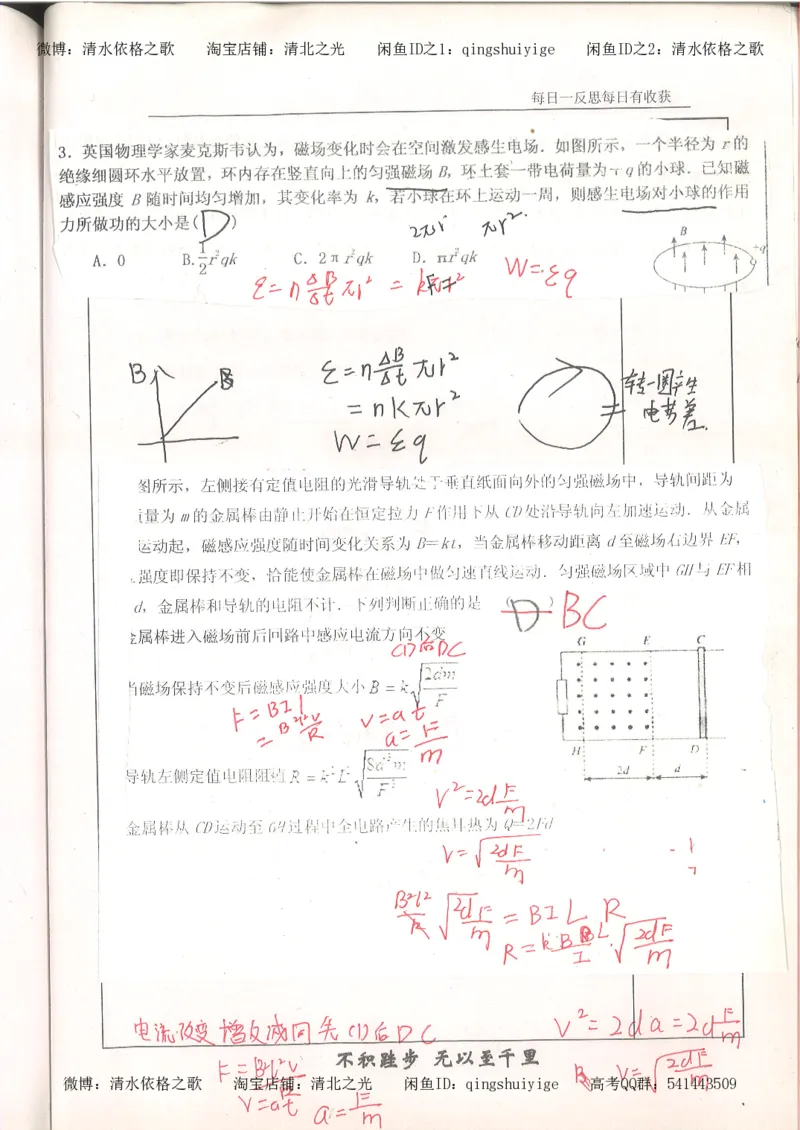 微博：清水依格之歌 淘宝店铺：清北之光 闲鱼ID之1：qingshuiyige 闲鱼ID之2：清水依格之歌
每日一反思每日有收获
3．英国物理学家麦克斯韦认为，磁场变化时会在空间激发感生电场．如图所示，一个半径为 r 的
绝缘细圆环水平放置，环内存在竖直向上的匀强磁场 B，环上套一带电荷量为＋q 的小球．已知磁
感应强度 B 随时间均匀增加，其变化率为 k，若小球在环上运动一周，则感生电场对小球的作用
力所做功的大小是( D )
2πr πr².
A．0 B. 1/2 r²qk C．2πr²qk D．πr²qk
B
+q
ε=n ΔB/Δt πr² = kπr² W=εq
B
B
ε=n ΔB/Δt πr²
=nkπr²
W=εq
转一圈产生
电势差.
图所示，左侧接有定值电阻的光滑导轨处于垂直纸面向外的匀强磁场中，导轨间距为
质量为 m 的金属棒由静止开始在恒定拉力 F 作用下从 CD 处沿导轨向左加速运动．从金属
运动起，磁感应强度随时间变化关系为 B=kt，当金属棒移动距离 d 至磁场右边界 EF，
强度即保持不变，恰能使金属棒在磁场中做匀速直线运动．匀强磁场区域中 GH 与 EF 相
d，金属棒和导轨的电阻不计．下列判断正确的是 ( D ) BC
金属棒进入磁场前后回路中感应电流方向不变
CD后DC
G E C
当磁场保持不变后磁感应强度大小 B = k√(2dm/F)
F=BIl
=B²l²v/R
v=at
a=F/m
H F D
2d d
导轨左侧定值电阻阻值 R = k²L²√(8d³m/F³)
v²=2d F/m
金属棒从 CD 运动至 GH 过程中全电路产生的焦耳热为 Q=2Fd
v=√(2dF/m)
B²l²/R √(2dF/m) = BIL R
R= √(2dF/m)
电流改变 增反减同 先CD后DC
v²=2da=2d F/m
不积跬步 无以至千里
F=B²l²v/R
B v=√(2dF/m)
微博：清水依格之歌 淘宝店铺：清北之光 闲鱼ID：qingshuiyige 高考QQ群：541443509
v=at a=F/m